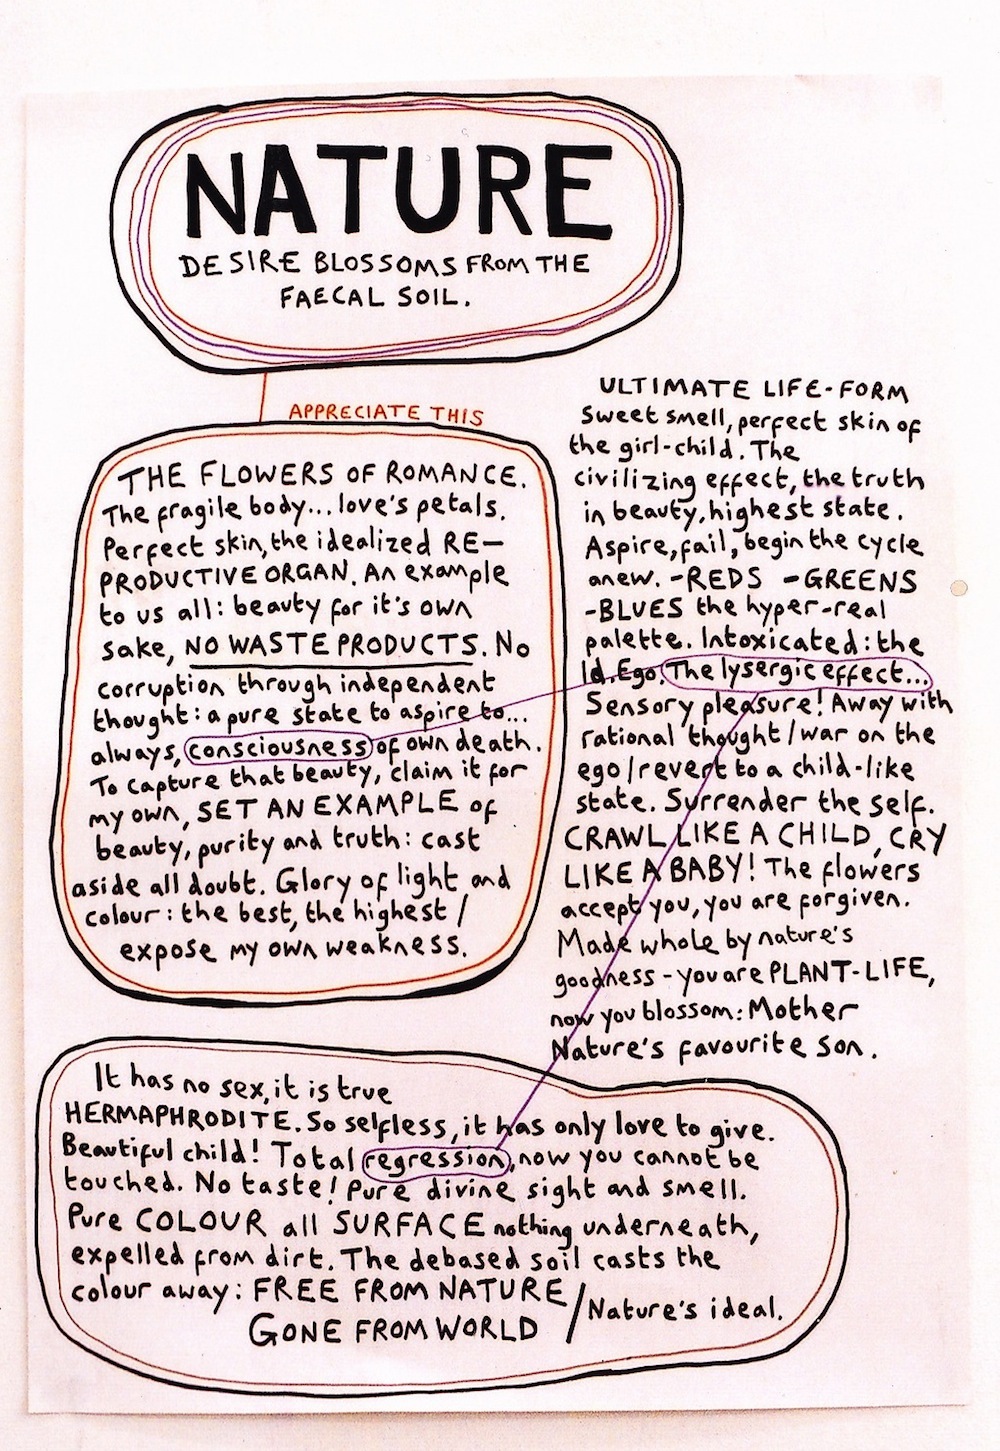 NATURE
DESIRE BLOSSOMS FROM THE
FAECAL SOIL.
APPRECIATE THIS
THE FLOWERS OF ROMANCE.
The fragile body... love's petals.
Perfect skin, the idealized RE-
PRODUCTIVE ORGAN. An example
to us all: beauty for it's own
sake, NO WASTE PRODUCTS. No
corruption through independent
thought: a pure state to aspire to...
always, consciousness of own death.
To capture that beauty, claim it for
my own, SET AN EXAMPLE of
beauty, purity and truth: cast
aside all doubt. Glory of light and
colour: the best, the highest /
expose my own weakness.
ULTIMATE LIFE-FORM
Sweet smell, perfect skin of
the girl-child. The
civilizing effect, the truth
in beauty, highest state.
Aspire, fail, begin the cycle
anew. -REDS -GREENS
-BLUES the hyper-real
palette. Intoxicated: the
Id. Ego. The lysergic effect...
Sensory pleasure! Away with
rational thought / war on the
ego / revert to a child-like
state. Surrender the self.
CRAWL LIKE A CHILD, CRY
LIKE A BABY! The flowers
accept you, you are forgiven.
Made whole by nature's
goodness - you are PLANT-LIFE,
now you blossom: Mother
Nature's favourite son.
It has no sex, it is true
HERMAPHRODITE. So selfless, it has only love to give.
Beautiful child! Total regression, now you cannot be
touched. No taste! Pure divine sight and smell.
Pure COLOUR all SURFACE nothing underneath,
expelled from dirt. The debased soil casts the
colour away: FREE FROM NATURE
GONE FROM WORLD / Nature's ideal.